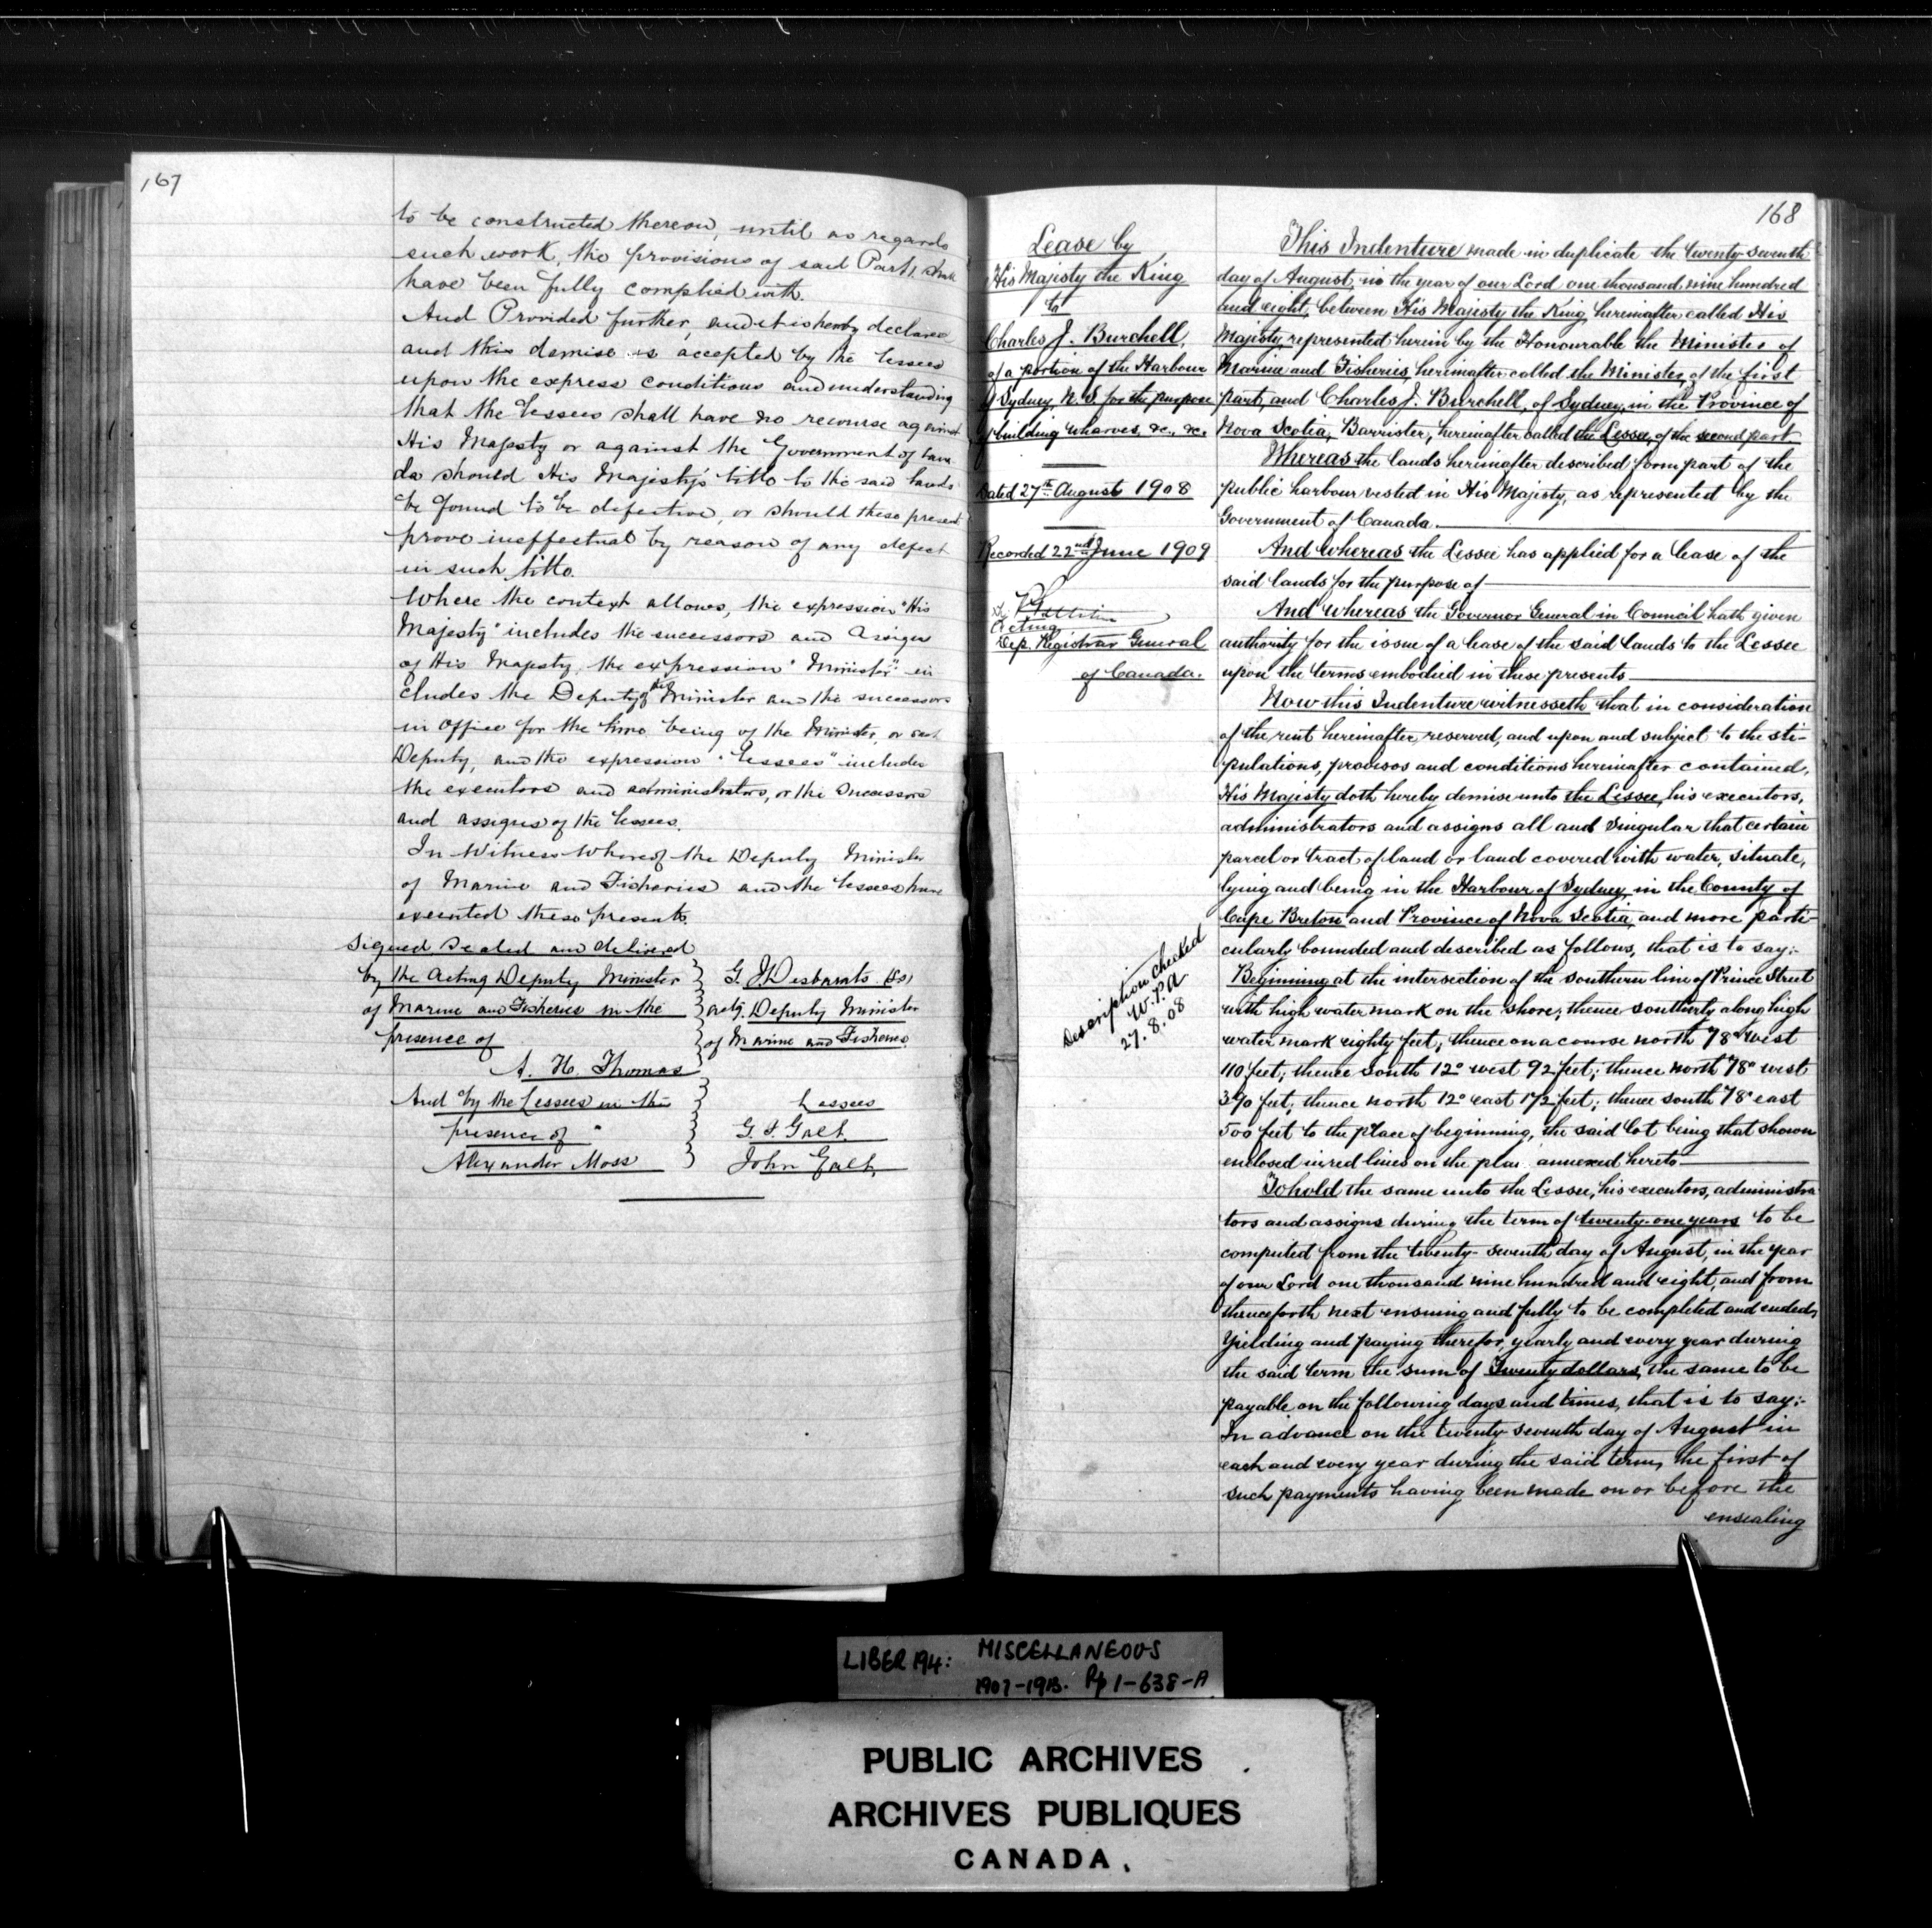 167
to be constructed thereon, until as regards
such work, the provisions of said Part 1. shall
have been fully complied with.
And Provided further, and it is hereby declared
and this demise is accepted by the Lessees
upon the express conditions and understanding
that the Lessees shall have no recourse against
His Majesty or against the Government of Cana
da should His Majesty's title to the said lands
be found to be defective, or should these present
prove ineffectual by reason of any defect
in such title.
Where the context allows, the expression "His
Majesty" includes the successors and Assigns
of His Majesty, the expression "Minister" in
cludes the Deputy of the Minister and the successors
in Office for the time being of the Minister, or such
Deputy, and the expression "Lessees" includes
the executors and administrators, or the Successors
and assigns of the Lessees.
In Witness Whereof the Deputy Minister
of Marine and Fisheries and the Lessees have
executed these presents.
Signed Sealed and delivered
by the Acting Deputy Minister
of Marine and Fisheries in the
presence of
A. H. Thomas
G. J. Desbarats (LS)
actg. Deputy Minister
of Marine and Fisheries
And by the Lessees in the
presence of
Alexander Moss
Lessees
G. F. Galt
John Galt
168
Lease by
His Majesty the King
to
Charles J. Burchell,
of a portion of the Harbour
of Sydney, N. S. for the purpose
of building wharves, &c., &c.
Dated 27th August 1908
Recorded 22nd June 1909
Acting
Dep. Registrar General
of Canada.
This Indenture made in duplicate the twenty seventh
day of August, in the year of our Lord one thousand nine hundred
and eight, between His Majesty the King, hereinafter called His
Majesty, represented herein by the Honourable the Minister of
Marine and Fisheries, hereinafter called the Minister, of the first
part, and Charles J. Burchell, of Sydney, in the Province of
Nova Scotia, Barrister, hereinafter called the Lessee, of the second part
Whereas the lands hereinafter described form part of the
public harbour vested in His Majesty, as represented by the
Government of Canada.
And whereas the Lessee has applied for a lease of the
said lands for the purpose of
And whereas the Governor General in Council hath given
authority for the issue of a lease of the said lands to the Lessee
upon the terms embodied in these presents
Now this Indenture witnesseth that in consideration
of the rent hereinafter reserved, and upon and subject to the sti-
pulations, provisos and conditions hereinafter contained,
His Majesty doth hereby demise unto the Lessee, his executors,
administrators and assigns all and singular that certain
parcel or tract of land or land covered with water, situate,
lying and being in the Harbour of Sydney, in the County of
Cape Breton and Province of Nova Scotia, and more parti-
cularly bounded and described as follows, that is to say:-
Description checked
W. P. A
27. 8. 08
Beginning at the intersection of the southern line of Prince Street
with high water mark on the shore; thence southerly along high
water mark eighty feet; thence on a course north 78° west
110 feet; thence south 12° west 92 feet; thence north 78° west
390 feet; thence north 12° east 172 feet; thence south 78° east
500 feet to the place of beginning, the said lot being that shown
enclosed in red lines on the plan annexed hereto
To hold the same unto the Lessee, his executors, administra
tors and assigns during the term of twenty-one years to be
computed from the twenty-seventh day of August, in the year
of our Lord one thousand nine hundred and eight, and from
thenceforth next ensuing and fully to be completed and ended,
Yielding and paying therefor, yearly and every year during
the said term the sum of Twenty dollars, the same to be
payable on the following days and times, that is to say:-
In advance on the twenty-seventh day of August in
each and every year during the said term, the first of
such payments having been made on or before the
ensealing
LIBER 194: MISCELLANEOUS
1907-1913. Pp 1-638-A
PUBLIC ARCHIVES
ARCHIVES PUBLIQUES
CANADA